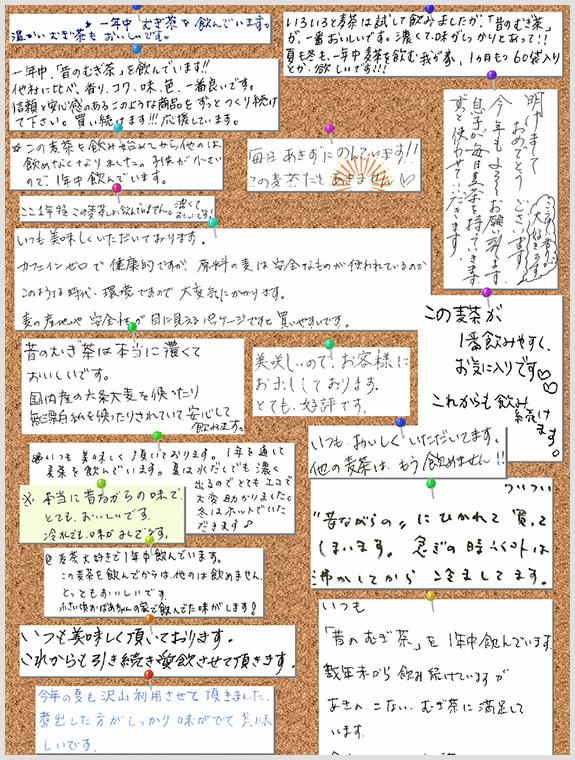 * 一年中 むぎ茶を飲んでいます。
温かいむぎ茶もおいしいです。
いろいろと麦茶は試して飲みましたが、「昔のむぎ茶」
が、一番おいしいです。濃くて、味がしっかりとあって!!
夏も冬も、一年中麦茶を飲む我が家、1ヵ月もつ60袋入り
とか、欲しいです!!!
一年中、「昔のむぎ茶」を飲んでいます!!
他社に比べ、香り、コク、味、色、一番良いです。
信頼と安心感のあるこのような商品をずっとつくり続け
て下さい。買い続けます!!!応援しています。
明けまして
おめでとうございます
今年もよろしくお願い致します。
息子が毎日麦茶を持っていきます。
ずっと使わせていただきます。
大好きです
※この麦茶を飲み始めてから他のは
飲めなくなりました。子供が小さい
ので、1年中飲んでいます。
毎日あきずにのんでいます!!
この麦茶だと あきません♡
ここ1年程この麦茶しか飲んでません。濃くて
おいしいです!
いつも美味しくいただいております。
カフェインゼロで健康的ですが、原料の麦は安全なものが使われているのか
このような時代、環境ですので大変気にかかります。
麦の産地や安全性が目に見えるパッケージですと買いやすいです。
昔のむぎ茶は本当に濃くて
おいしいです。
国内産の六条大麦を使ったり
無漂白紙を使ったりされていて安心して
飲めます。
美味しいので、お客様に
お出ししております。
とても、好評です。
この麦茶が
1番飲みやすく、
お気に入りです♡♡
これからも飲み
続け
ます。
いつも、おいしくいただいてます。
他の麦茶は、もう飲めません!!
いつも美味しく頂いております。1年を通して
麦茶を飲んでいます。夏は水だしでも濃く
出るのでとてもエコで
大変助かりました。
冬はホットでいた
だきます♪
※ 本当に昔ながらの味で、
とても、おいしいです。
冷れても、味がまして
ついつい
“昔ながらの〟にひかれて買って
しまいます。急ぎの時以外は
沸かしてから冷ましてます。
麦茶大好きで1年中飲んでいます。
この麦茶を飲んでからは、他のは飲めません。
とってもおいしいです。
小さい頃おばあちゃんの家で飲んでた味がします!
いつも
「昔のむぎ茶」を1年中飲んでいます。
数年前から飲み続けていますが
あきの こない、むぎ茶に満足して
います。
いつも美味しく頂いております。
これからも引き続き愛飲させて頂きます。
今年の夏も沢山利用させて頂きました。
煮出した方がしっかり味がでて美味
しいです。